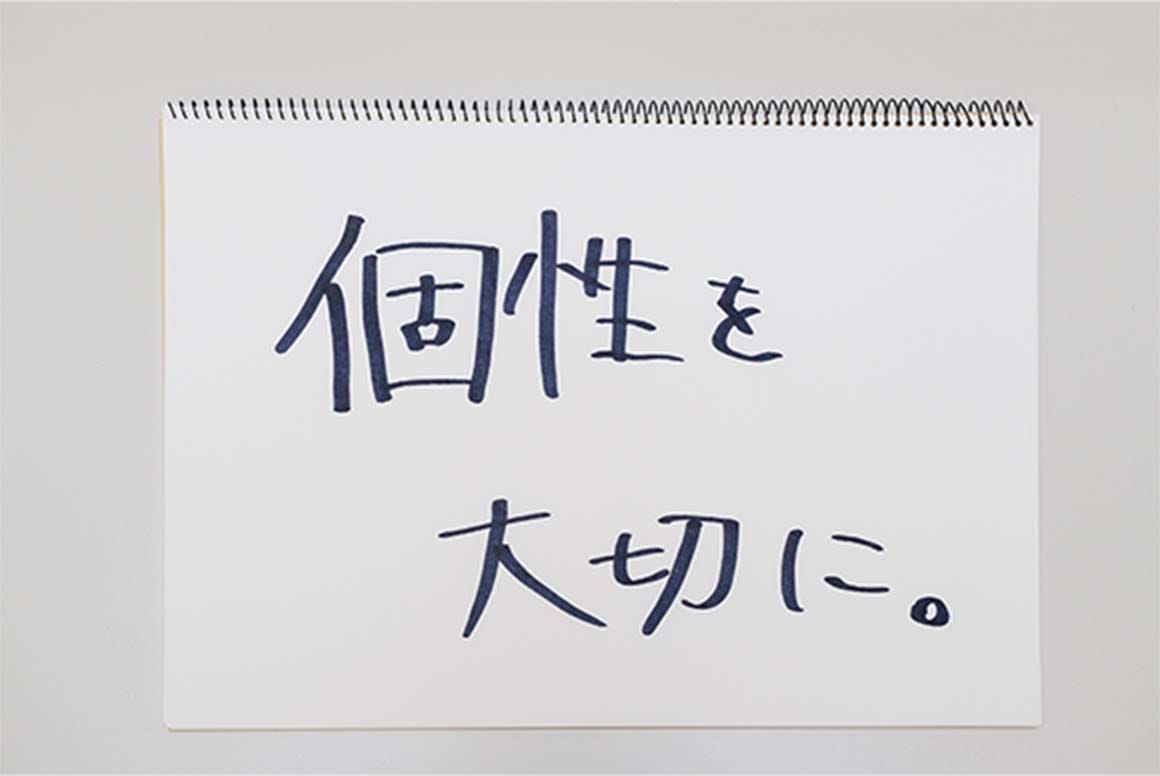 個性を
大切に。